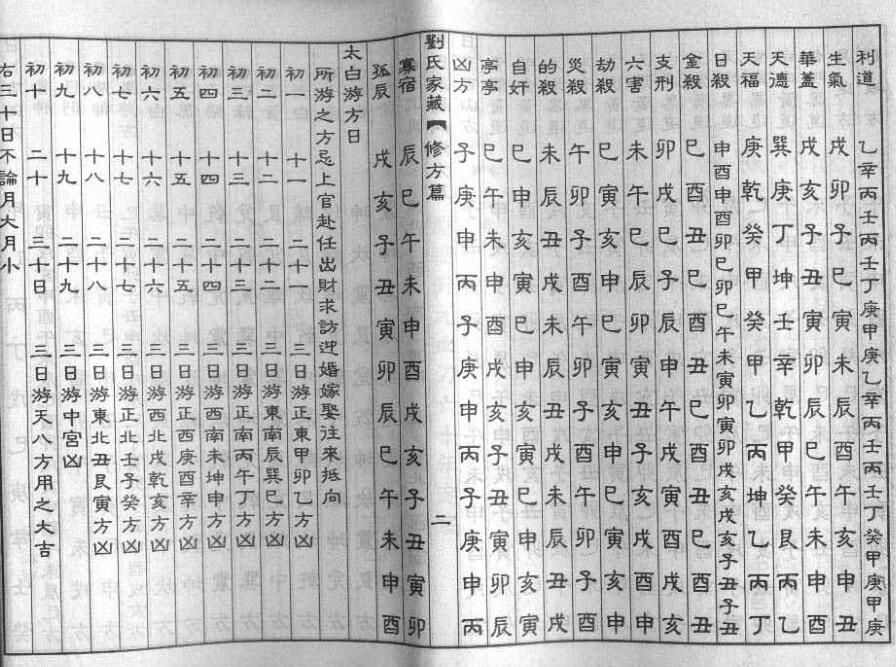 利道 乙辛丙壬丙壬丁庚甲庚乙辛丙壬丙壬丁癸甲庚甲庚
生氣 戌卯子巳寅未辰酉午亥申丑
華蓋 戌亥子丑寅卯辰巳午未申酉
天德 巽庚丁坤壬辛乾甲癸艮丙乙
天福 庚乾癸甲癸甲乙丙坤乙丙丁
日殺 申酉申酉卯巳卯巳午未寅卯寅卯戌亥戌亥子丑子丑
金殺 巳酉丑巳酉丑巳酉丑巳酉丑
支刑 卯戌巳子辰申午丑寅酉未亥
六害 未午巳辰卯寅丑子亥戌酉申
劫殺 巳寅亥申巳寅亥申巳寅亥申
災殺 午卯子酉午卯子酉午卯子酉
的殺 未辰丑戌未辰丑戌未辰丑戌
自奸 巳申亥寅巳申亥寅巳申亥寅
亭亭 巳午未申酉戌亥子丑寅卯辰
凶方 子庚申丙子庚申丙子庚申丙
劉氏家藏【修方篇
二
寡宿 辰巳午未申酉戌亥子丑寅卯
孤辰 戌亥子丑寅卯辰巳午未申酉
太白游方日
所游之方忌上官赴任出財求訪迎婚嫁娶往來抵向
初一 十一 二十一 三日游正東甲卯乙方凶
初二 十二 二十二 三日游東南辰巽巳方凶
初三 十三 二十三 三日游正南丙午丁方凶
初四 十四 二十四 三日游西南未坤申方凶
初五 十五 二十五 三日游正西庚酉辛方凶
初六 十六 二十六 三日游西北戌乾亥方凶
初七 十七 二十七 三日游正北壬子癸方凶
初八 十八 二十八 三日游東北丑艮寅方凶
初九 十九 二十九 三日游中宮凶
初十 二十 三十日 三日游天八方用之大吉
右三十日不論月大月小